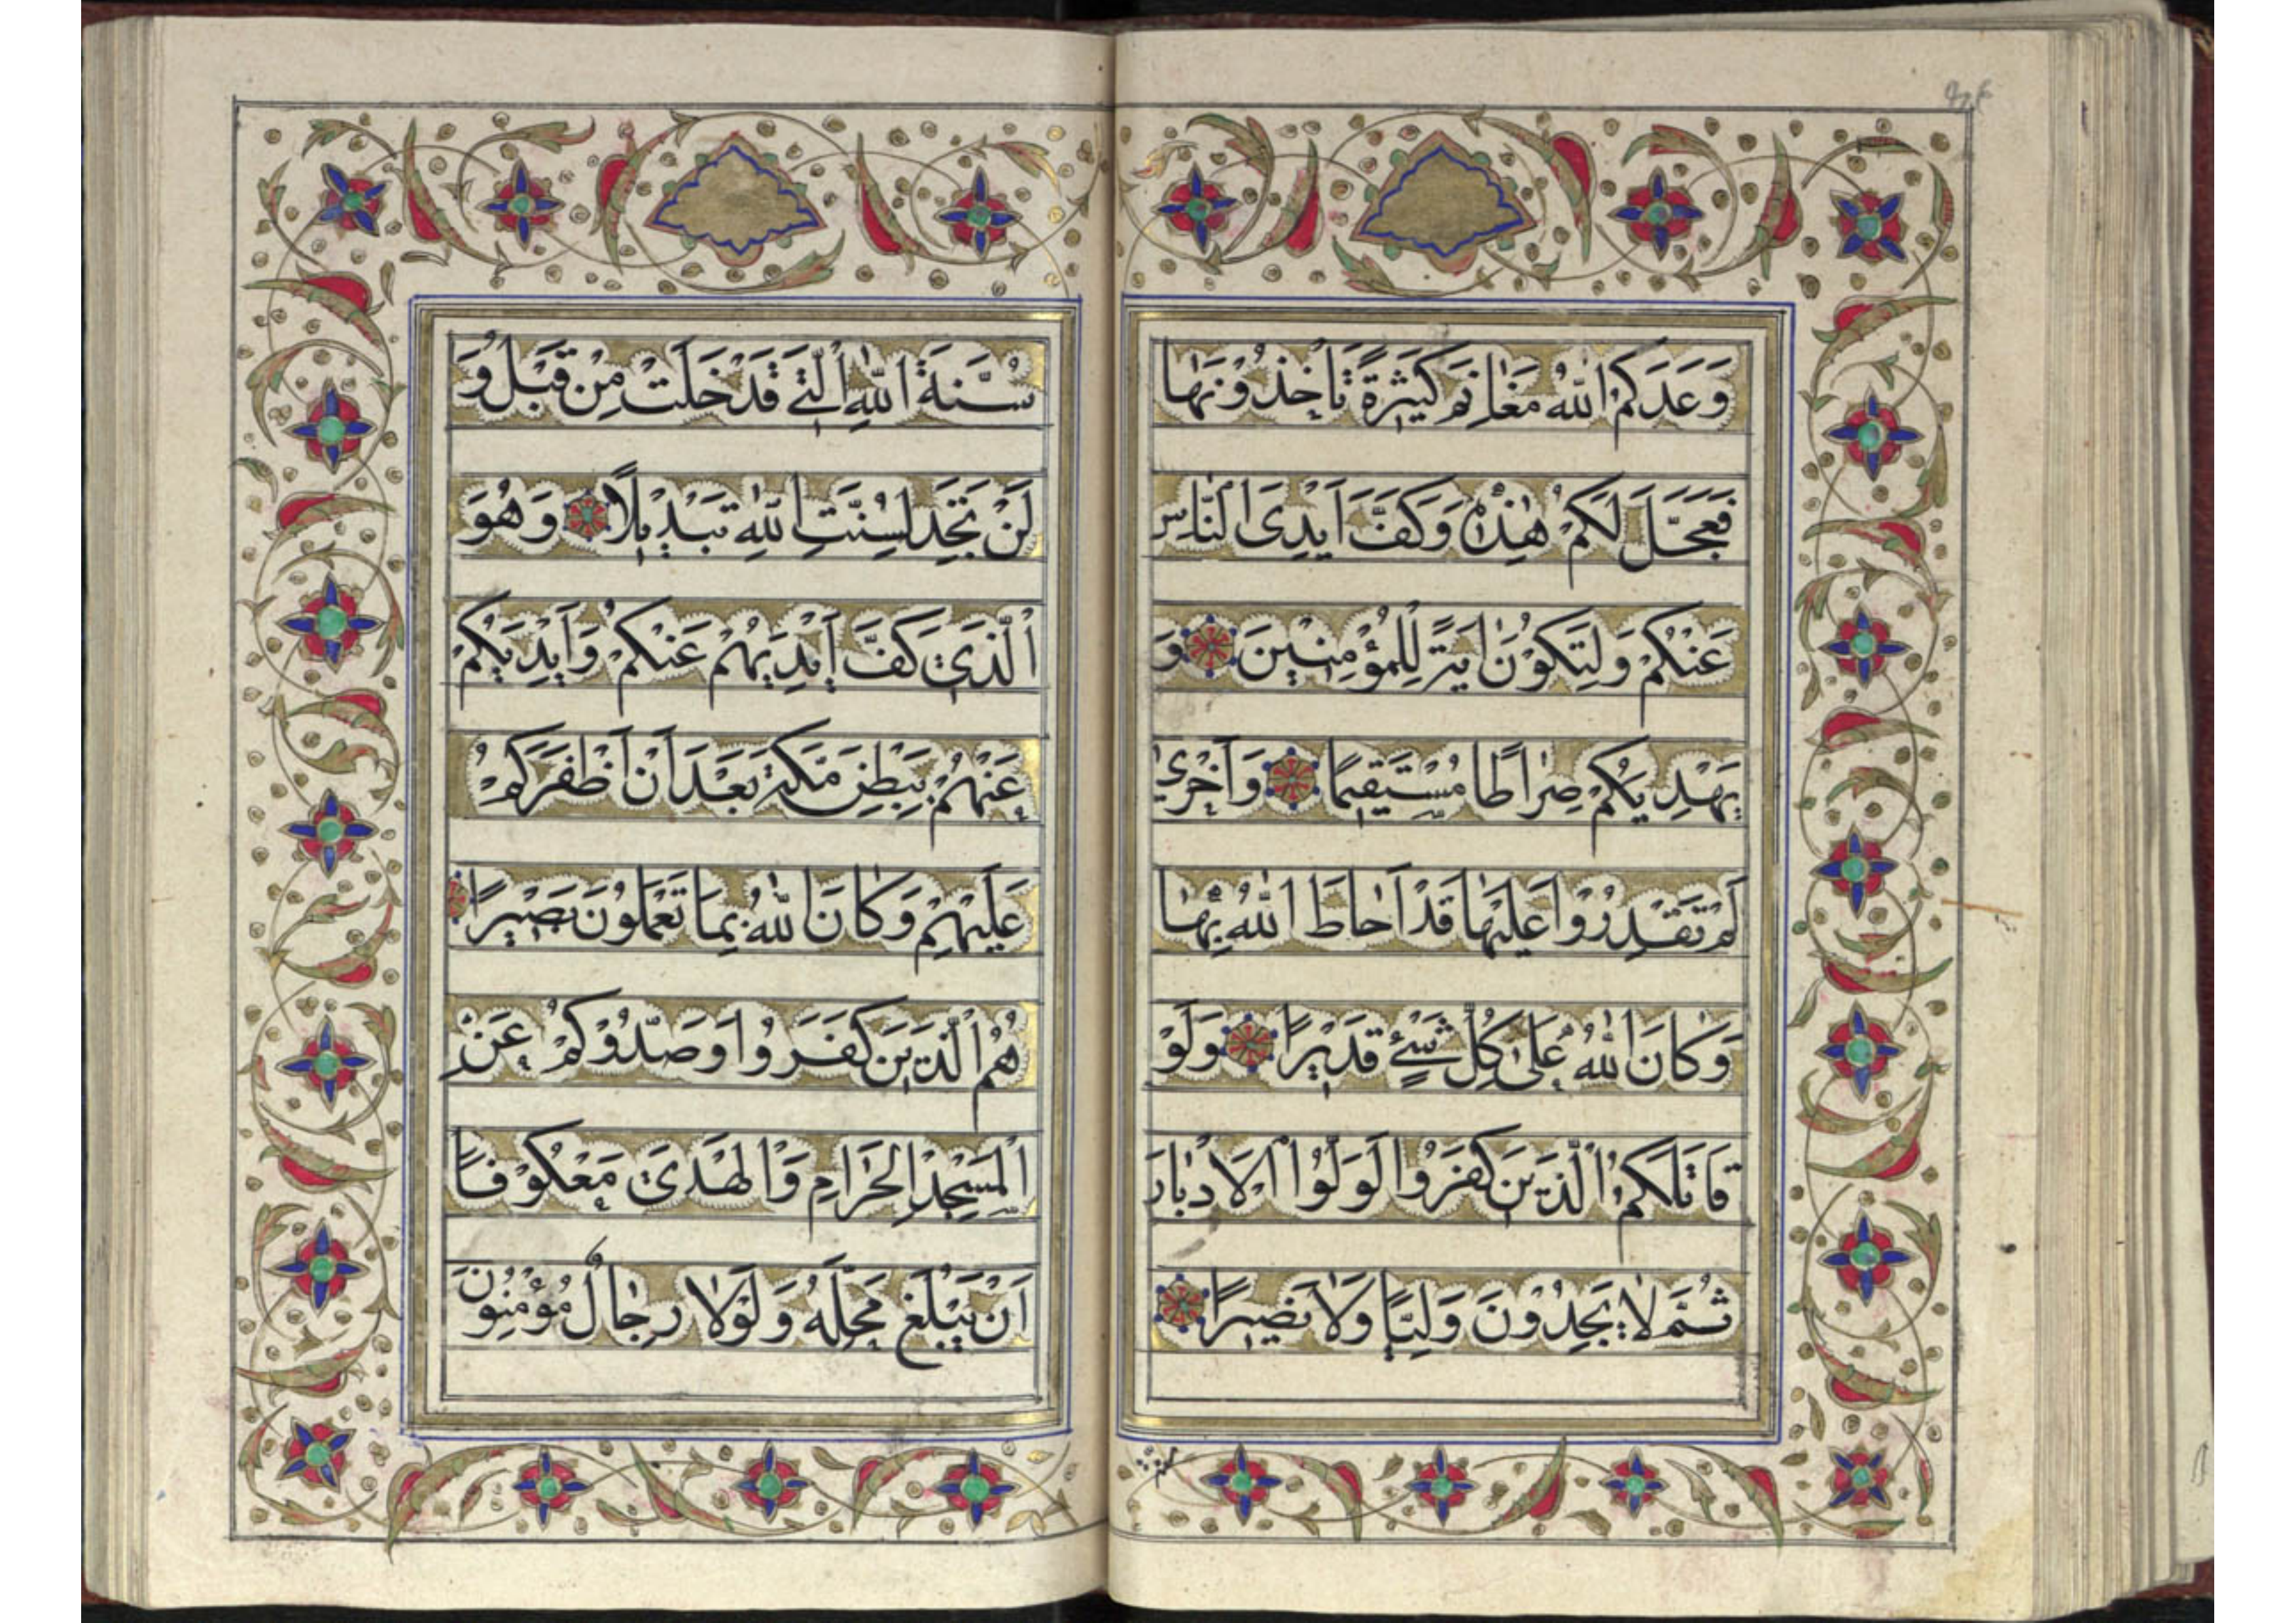 وَعَدَكُمُ اللّٰهُ مَغَانِمَ كَثِيرَةً تَأْخُذُونَهَا
فَعَجَّلَ لَكُمْ هٰذِهِ وَكَفَّ أَيْدِيَ النَّاسِ
عَنْكُمْ وَلِتَكُونَ اٰيَةً لِلْمُؤْمِنِينَ وَ
يَهْدِيَكُمْ صِرَاطًا مُسْتَقِيمًا وَأُخْرىٰ
لَمْ تَقْدِرُوا عَلَيْهَا قَدْ أَحَاطَ اللّٰهُ بِهَا
وَكَانَ اللّٰهُ عَلىٰ كُلِّ شَيْءٍ قَدِيرًا وَلَوْ
قَاتَلَكُمُ الَّذِينَ كَفَرُوا لَوَلَّوُا الْأَدْبَارَ
ثُمَّ لَا يَجِدُونَ وَلِيًّا وَلَا نَصِيرًا
سُنَّةَ اللّٰهِ الَّتِي قَدْ خَلَتْ مِنْ قَبْلُ وَ
لَنْ تَجِدَ لِسُنَّتِ اللّٰهِ تَبْدِيلًا وَهُوَ
الَّذِي كَفَّ أَيْدِيَهُمْ عَنْكُمْ وَأَيْدِيَكُمْ
عَنْهُمْ بِبَطْنِ مَكَّةَ بَعْدَ أَنْ أَظْفَرَكُمْ
عَلَيْهِمْ وَكَانَ اللّٰهُ بِمَا تَعْمَلُونَ بَصِيرًا
هُمُ الَّذِينَ كَفَرُوا وَصَدُّوكُمْ عَنِ
الْمَسْجِدِ الْحَرَامِ وَالْهَدْيَ مَعْكُوفًا
أَنْ يَبْلُغَ مَحِلَّهُ وَلَوْلَا رِجَالٌ مُؤْمِنُونَ